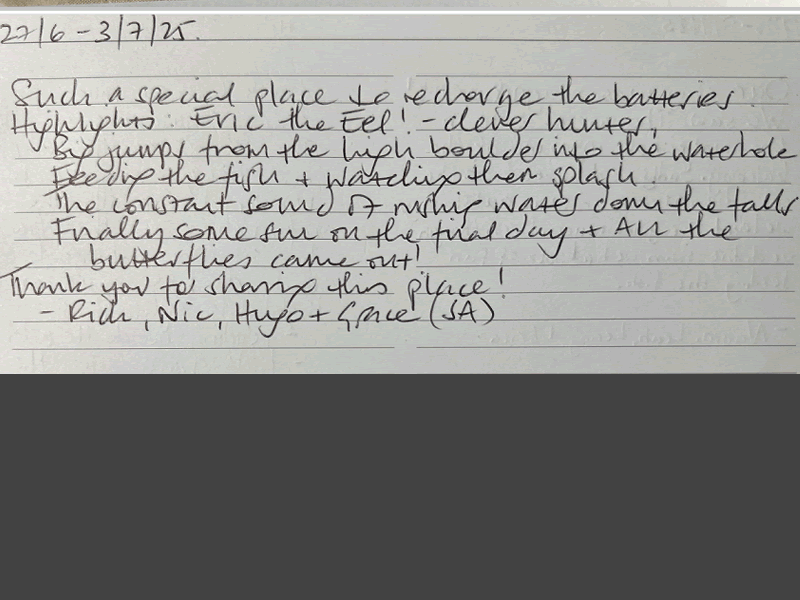 27/6 - 3/7/25.
Such a special place to recharge the batteries.
Highlights: Eric the Eel! - clever hunter,
Big jumps from the high boulder into the waterhole
Feeding the fish + watching them splash.
The constant sound of rushing water down the falls
Finally some sun on the final day + All the
butterflies came out!
Thank you for sharing this place!
- Rich, Nic, Hugo + Grace (SA)